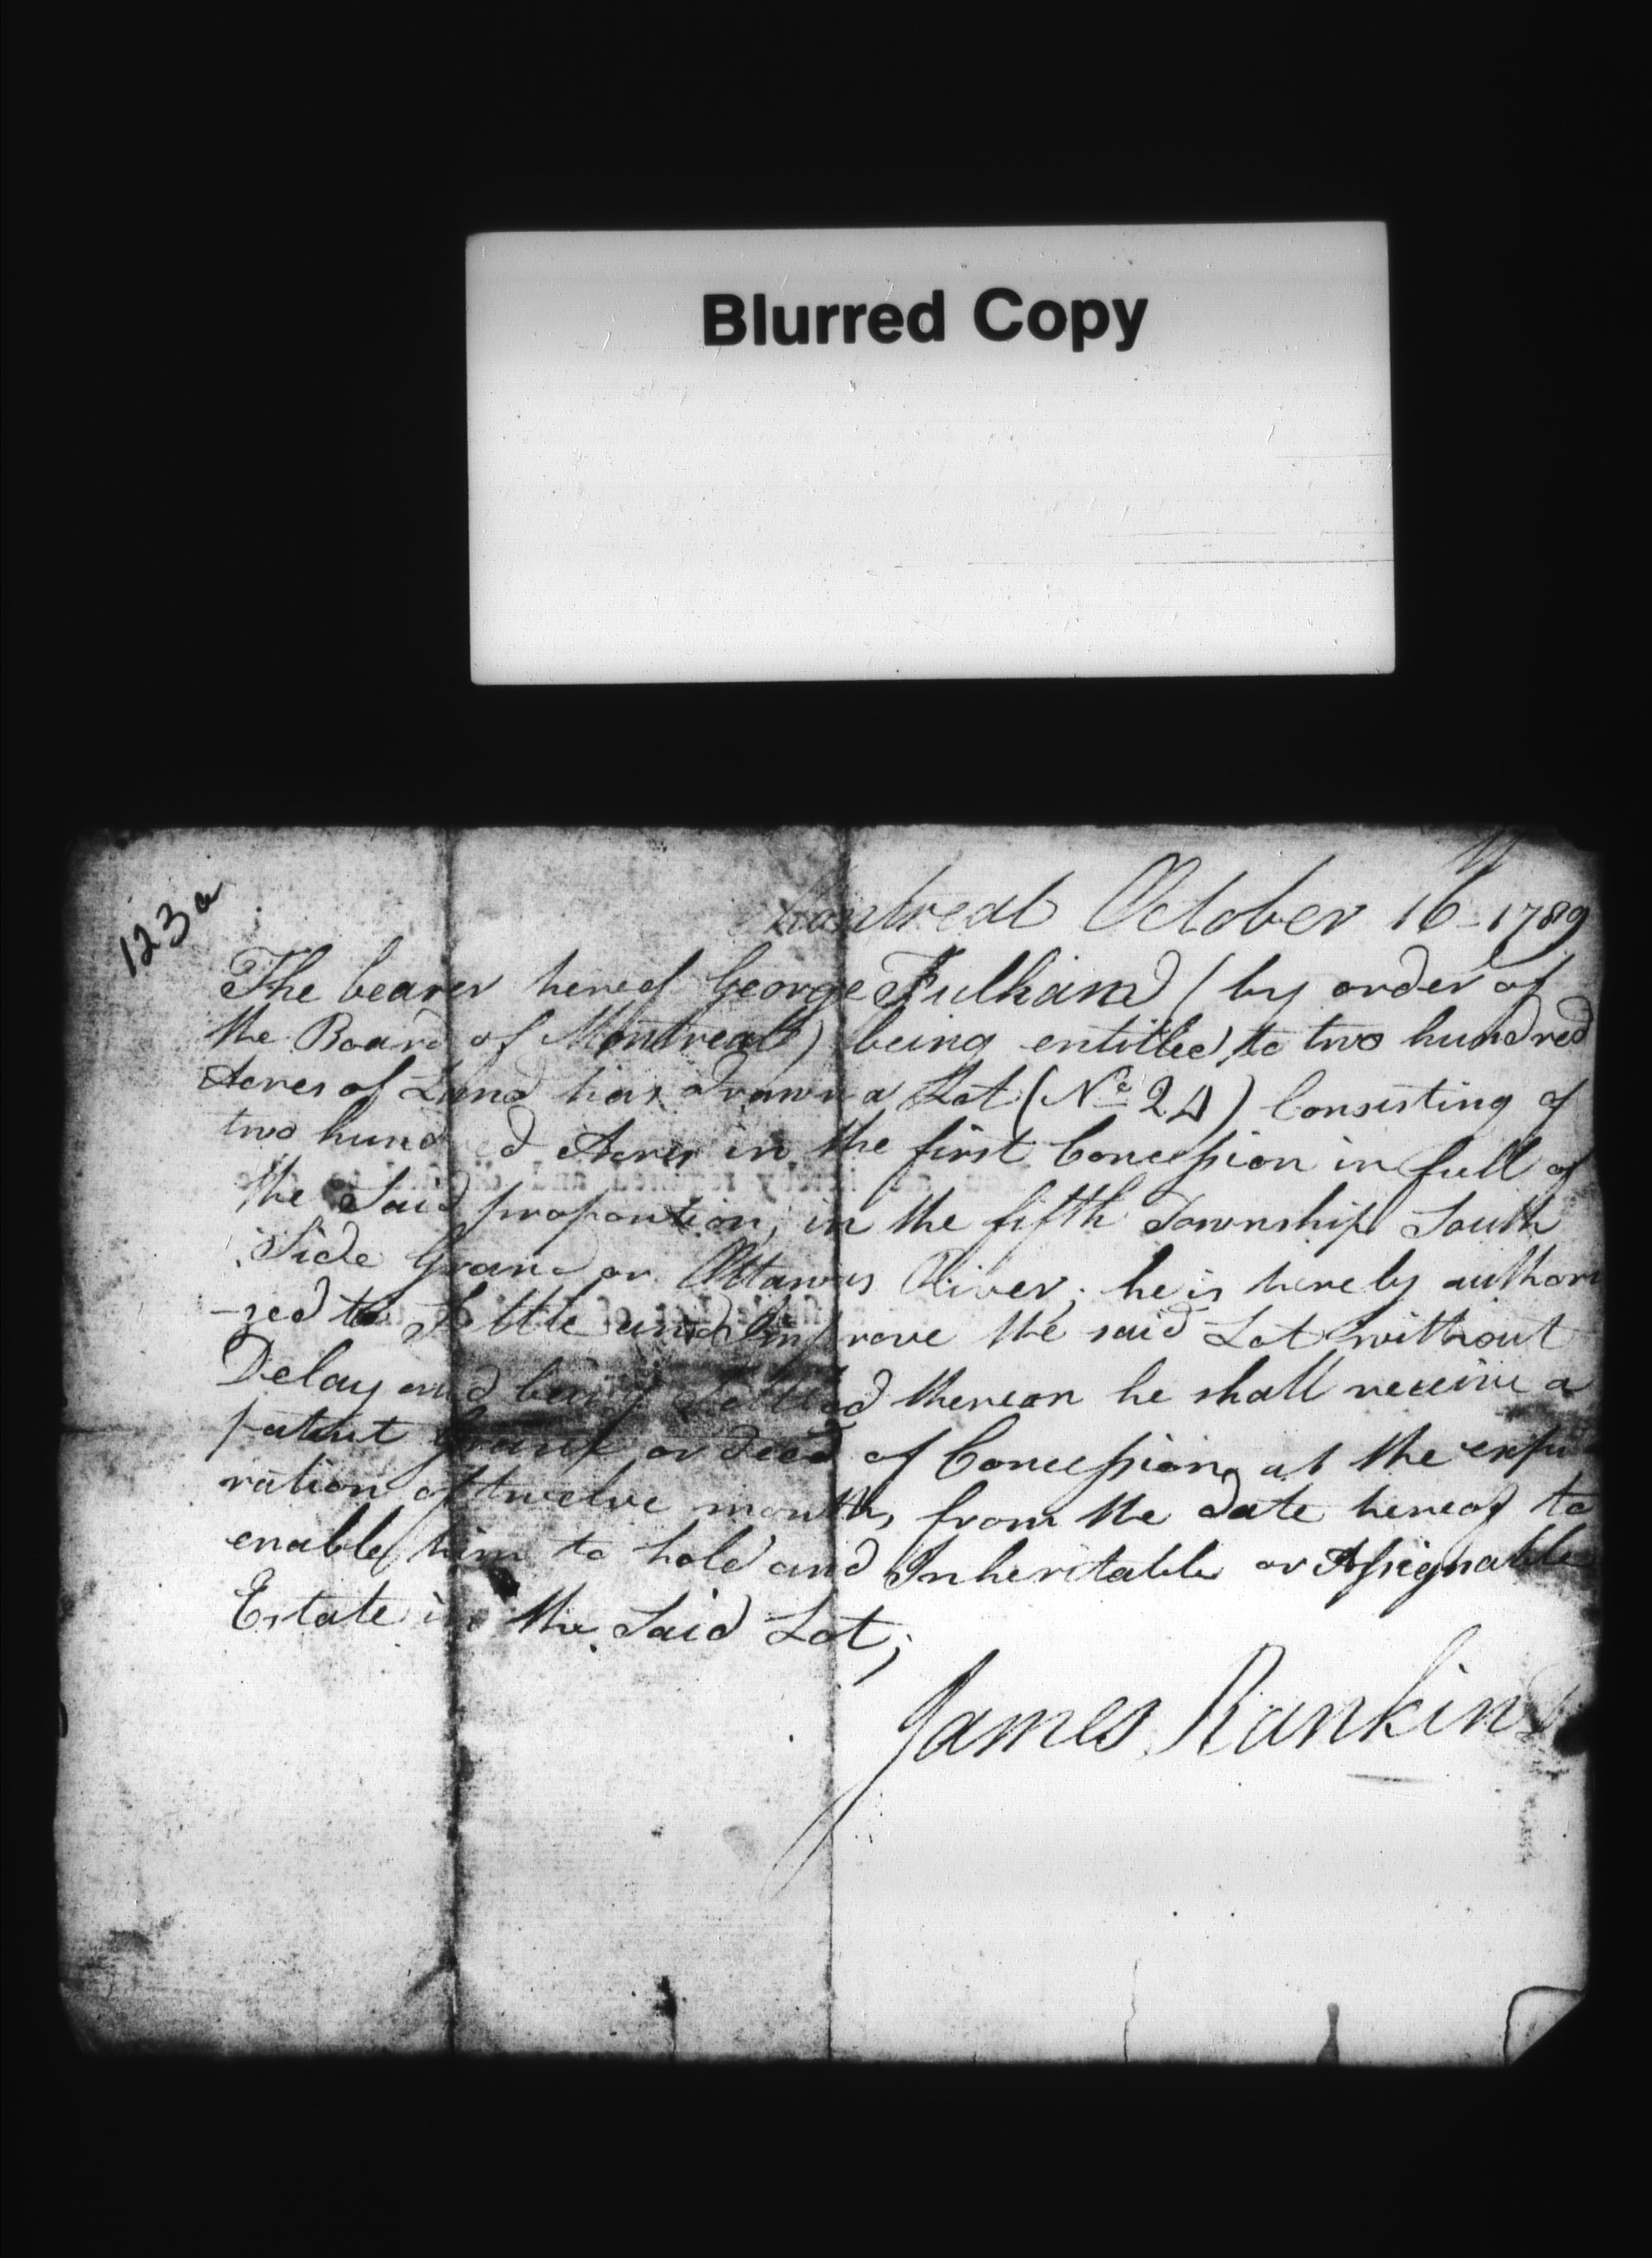 Blurred Copy
123a
Montreal October 16 - 1789
The bearer hereof George Fulham (by order of
the Board of Montreal) being entitled to two hundred
Acres of Land has drawn a Lot (No 24) Consisting of
two hundred Acres in the first Concession in full of
the Said proportion, in the fifth Township South
Side Grand or Ottawas River; he is hereby authori
-zed to Settle and Improve the said Lot without
Delay and being Settled thereon he shall receive a
patent Grant or deed of Concession at the expi
ration of twelve months from the date hereof to
enable him to hold and Inheritable or Assignable
Estate in the Said Lot;
James Rankin